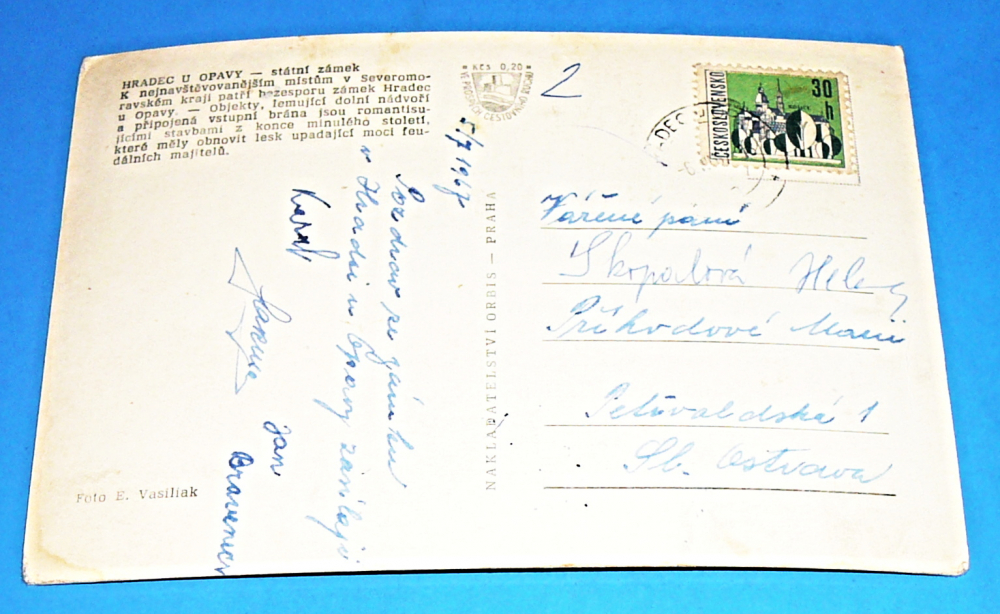 HRADEC U OPAVY — státní zámek
K nejnavštěvovanějším místům v Severomo-
ravském kraji patří bezesporu zámek Hradec
u Opavy. — Objekty, lemující dolní nádvoří
a připojená vstupní brána jsou romantisu-
jícími stavbami z konce minulého století,
které měly obnovit lesk upadající moci feu-
dálních majitelů.
KČS 0,20
2
ČESKOSLOVENSKO
30
h
5/7 1967
Pozdrav ze zámku
v Hradci u Opavy zasílají
Karel
Jan
NAKLADATELSTVÍ ORBIS — PRAHA
Vážené paní
Skopalová Helena
Příhodové Marii
Petřvaldská 1
Sl. Ostrava
Foto E. Vasiliak